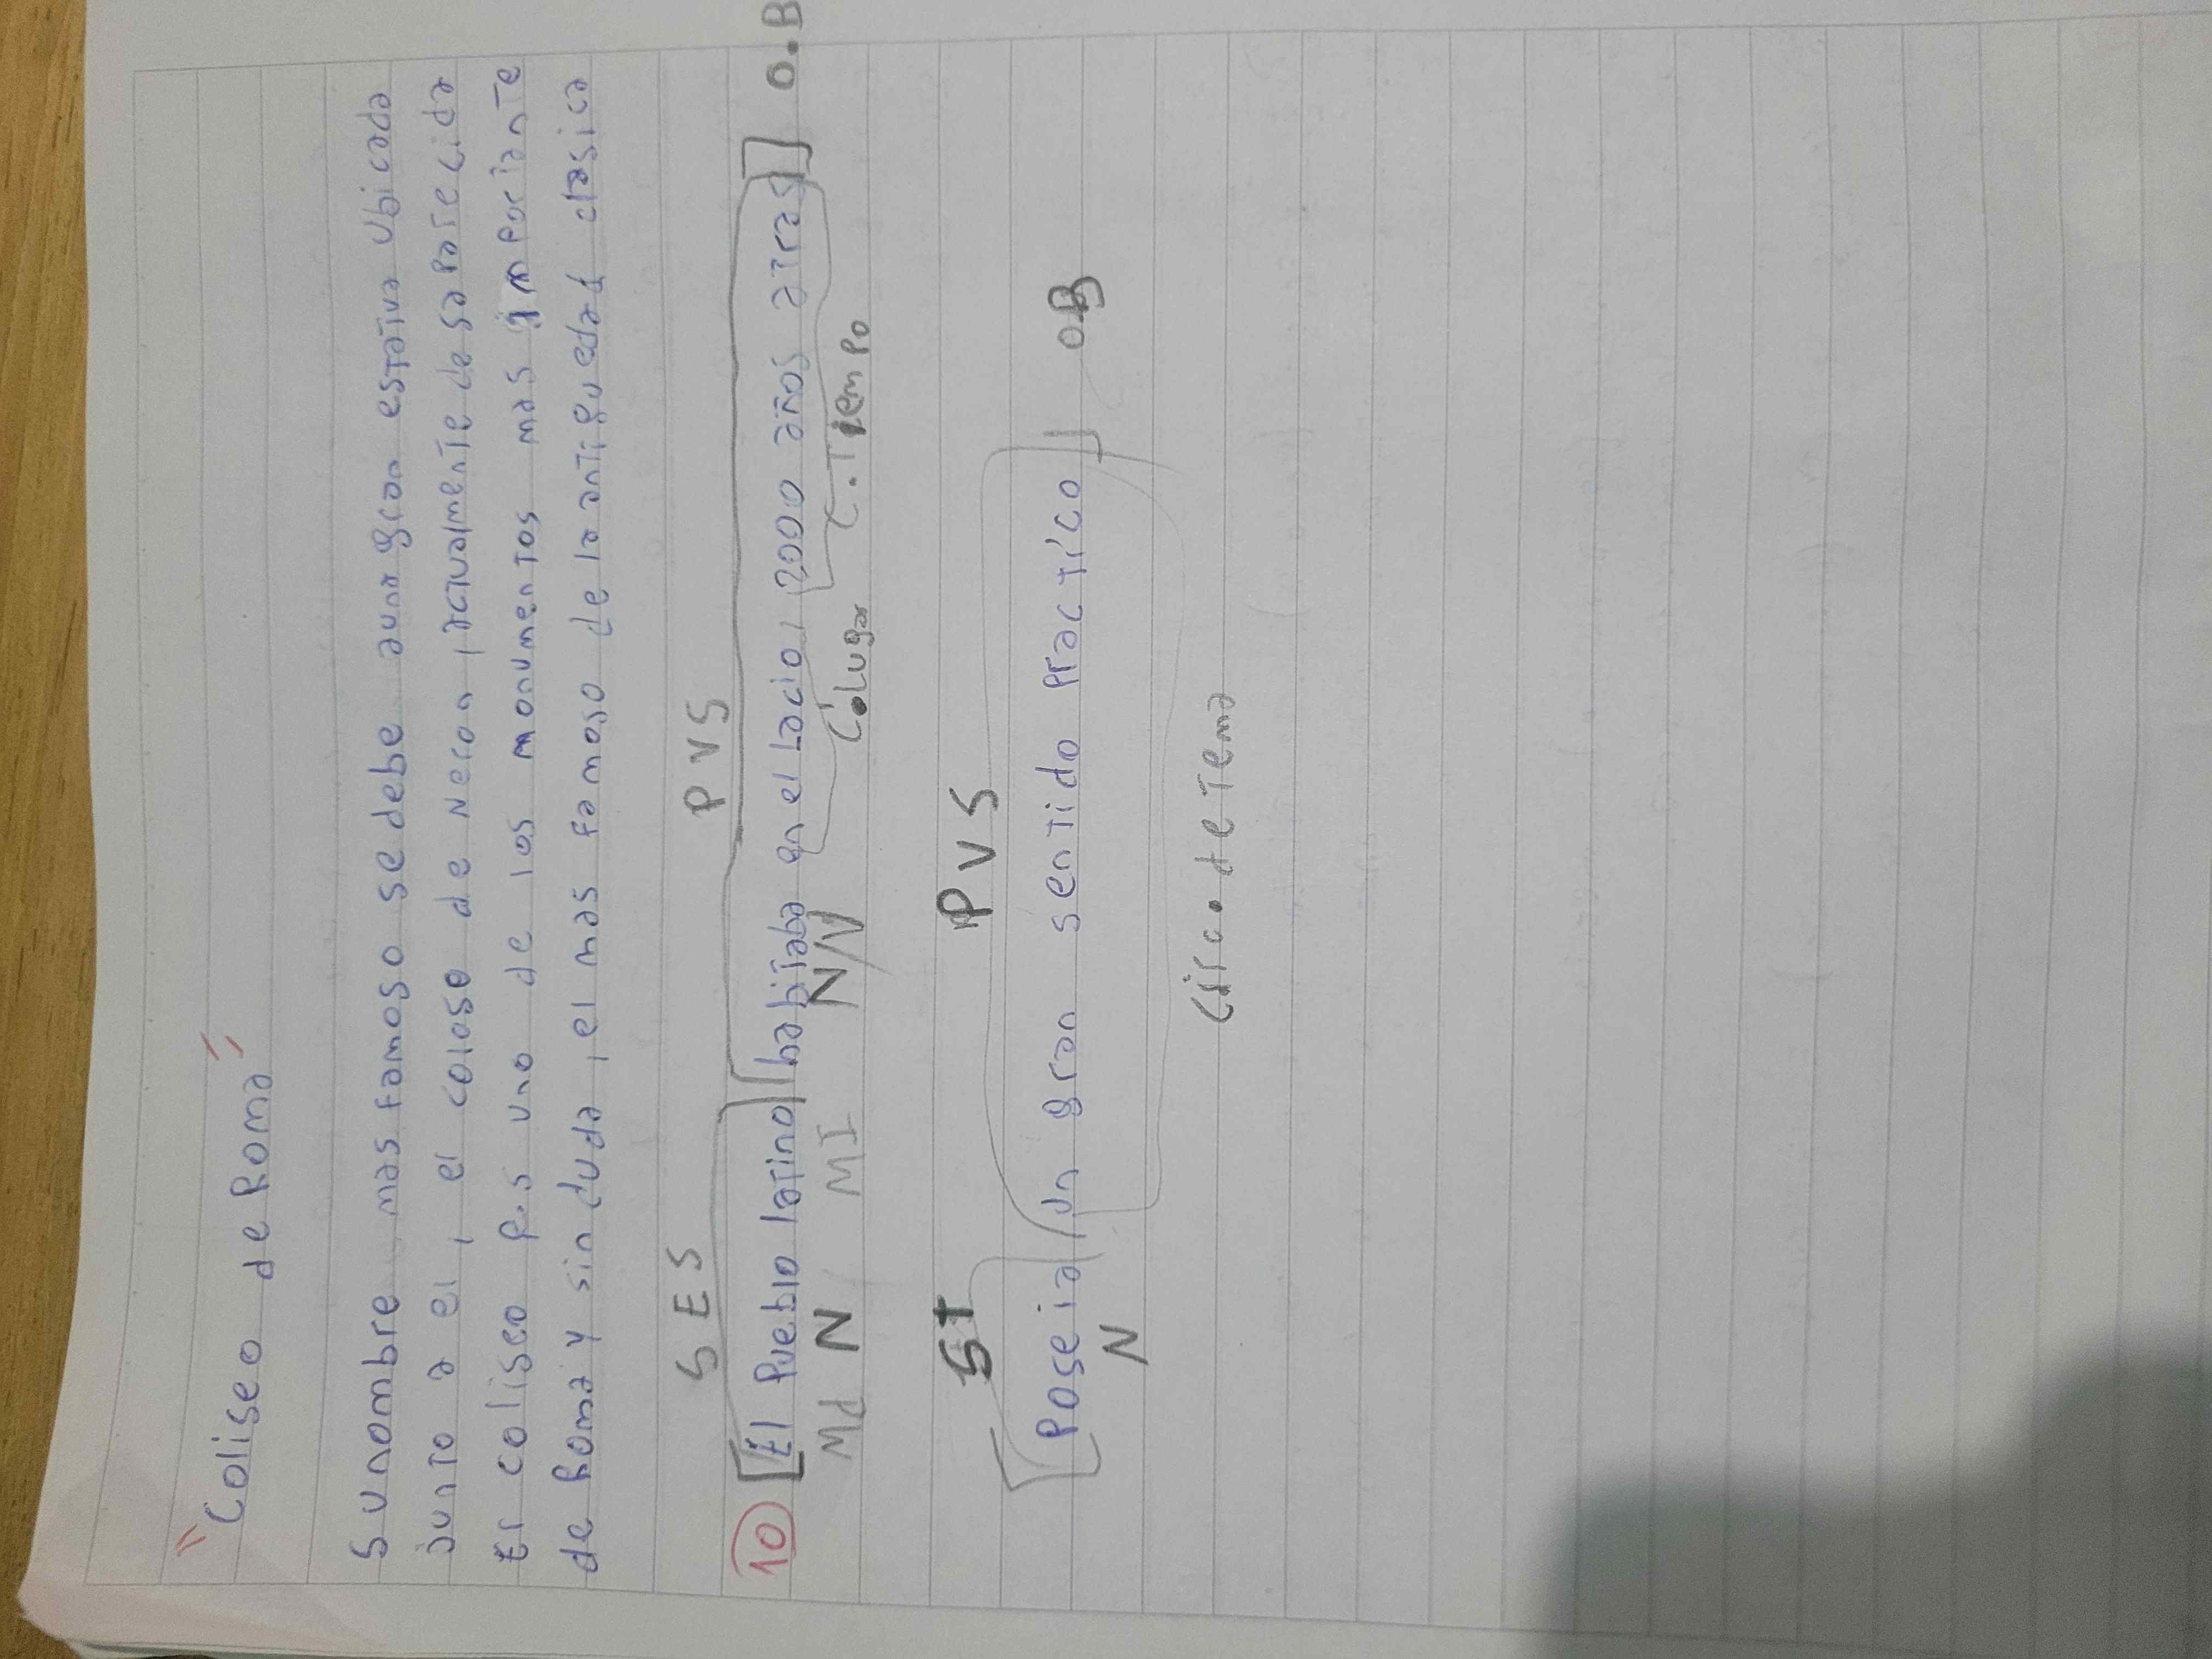 "Coliseo de Roma"
Su nombre mas famoso se debe a una gran estatua ubicada
junto a el, el coloso de Neron, actualmente desaparecida
El coliseo es uno de los monumentos mas importante
de Roma y sin duda, el mas famoso de la antiguedad clasica
SES PVS
10 [El Pueblo latino] [habitaba en el Lacio, 2000 años atras] O.B
Md N MI N/V C.Lugar C.Tiempo
ST PVS
[Poseia] [un gran sentido Practico] OB
N
Circ. de Tema